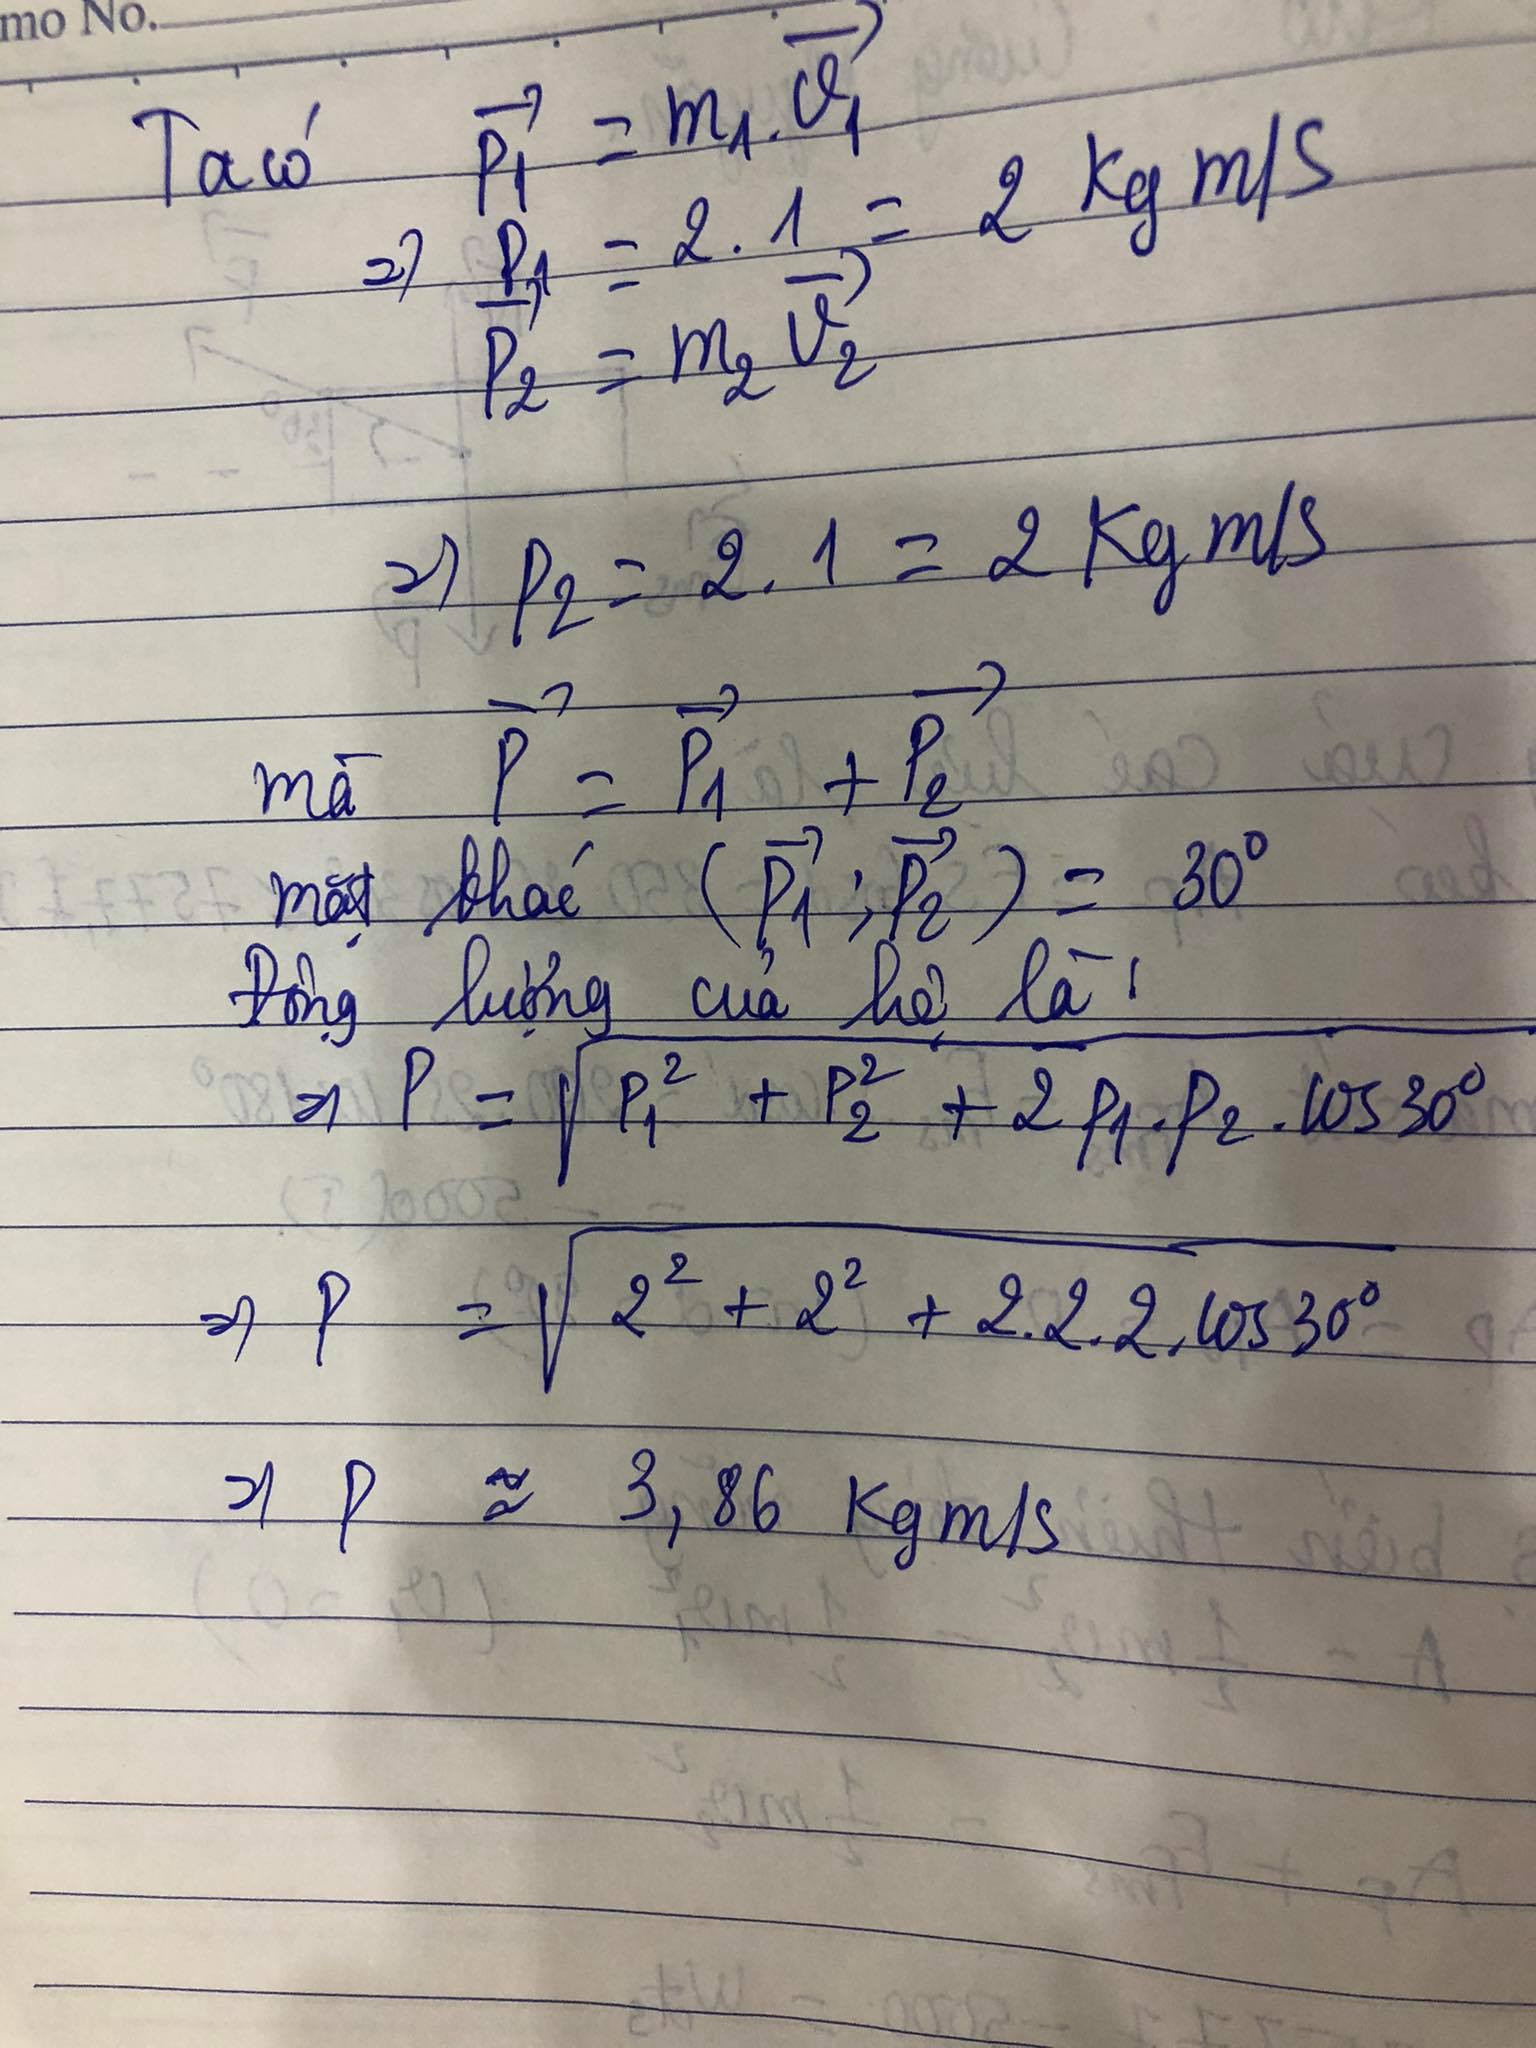 mo No.
Ta có $\vec{P_1} = m_1 . \vec{v_1}$
=> $P_1 = 2 . 1 = 2$ Kg m/s
$\vec{P_2} = m_2 \vec{v_2}$
=> $P_2 = 2 . 1 = 2$ Kg m/s
mà $\vec{P} = \vec{P_1} + \vec{P_2}$
mặt khác $(\vec{P_1} ; \vec{P_2}) = 30^0$
Động lượng của hệ là:
=> $P = \sqrt{P_1^2 + P_2^2 + 2 P_1 . P_2 . cos 30^0}$
=> $P = \sqrt{2^2 + 2^2 + 2.2.2. cos 30^0}$
=> $P ≈ 3,86$ Kg m/s